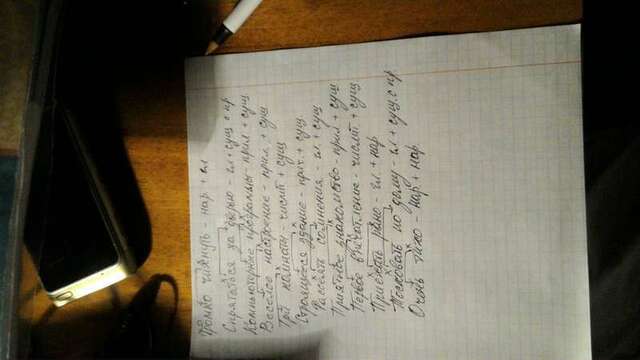 Громко чихнуть - нар. + гл
Спрятаться за дверью - гл + сущ. с пр
Компьютерные программы - прил + сущ
Весёлое настроение - прил. + сущ
Три комнаты - числит + сущ
Строящееся здание - прич. + сущ
Рассеять сомнения - гл. + сущ
Приятное знакомство - прил + сущ
Первое впечатление - числит + сущ
Приехать рано - гл. + нар
Тосковать по дому - гл + сущ. с пр
Очень тихо - нар + нар.